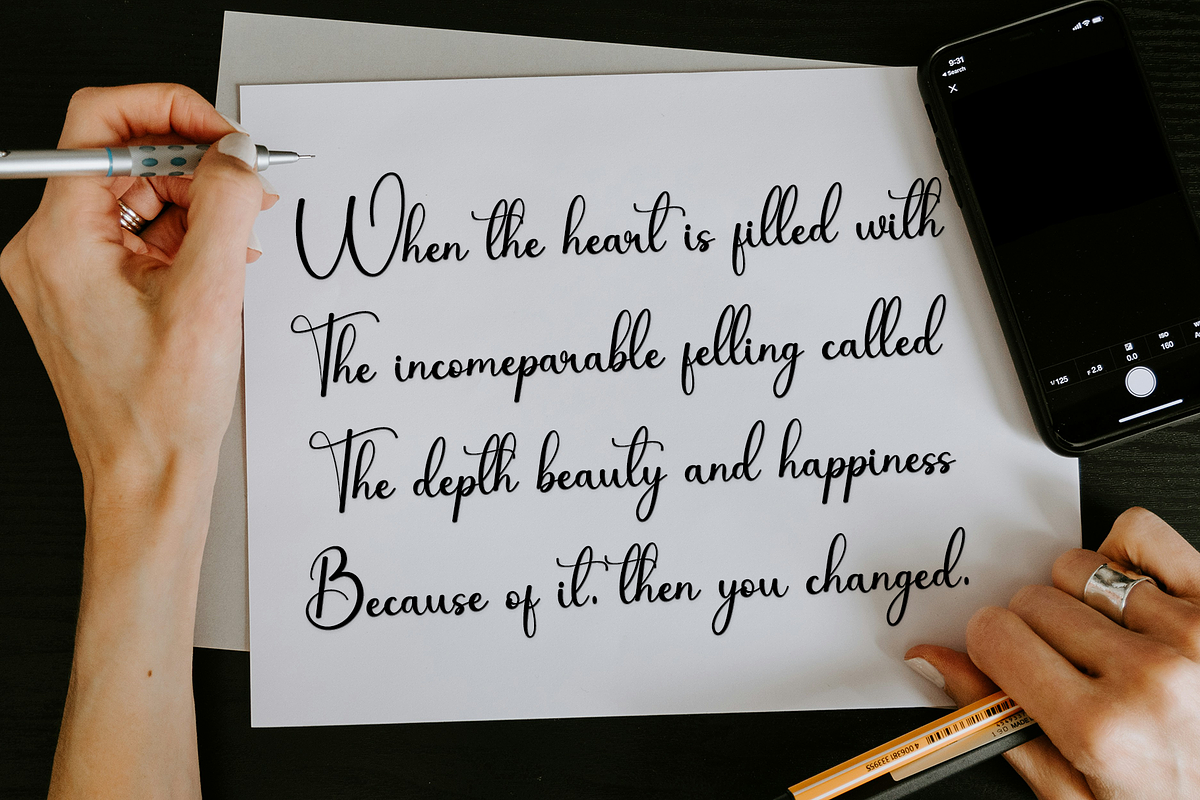 When the heart is filled with
The incomeparable felling called
The depth beauty and happiness
Because of it. then you changed.
9:31
Search
WB
ISO
0.0
160
1/125
F 2.8
4 006381 333955